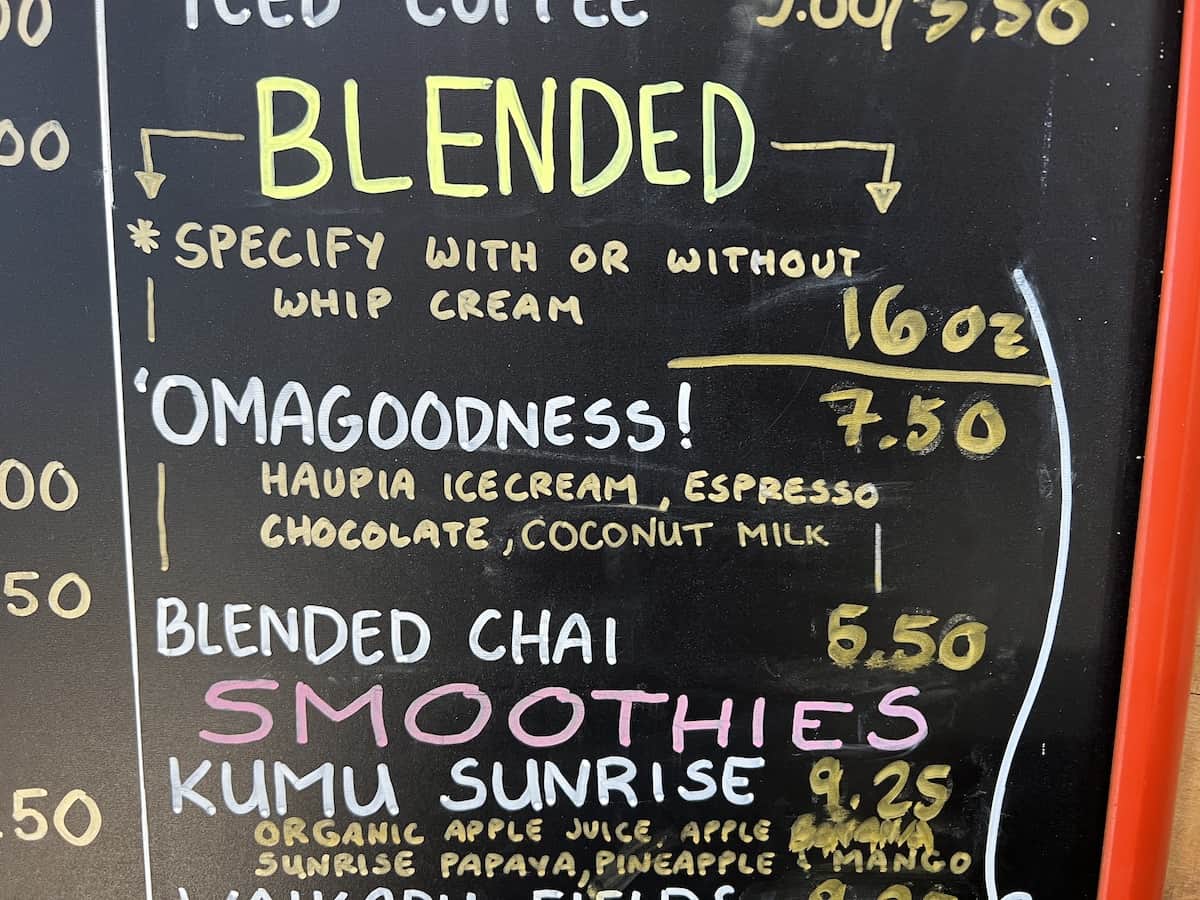 00 ICED COFFEE 5.00/5.50
BLENDED
00
* SPECIFY WITH OR WITHOUT
WHIP CREAM
16 oz
'OMAGOODNESS! 7.50
00
HAUPIA ICECREAM, ESPRESSO
CHOCOLATE, COCONUT MILK
50
BLENDED CHAI 6.50
SMOOTHIES
KUMU SUNRISE 9.25
.50
ORGANIC APPLE JUICE, APPLE BANANA
SUNRISE PAPAYA, PINEAPPLE & MANGO
FIELDS